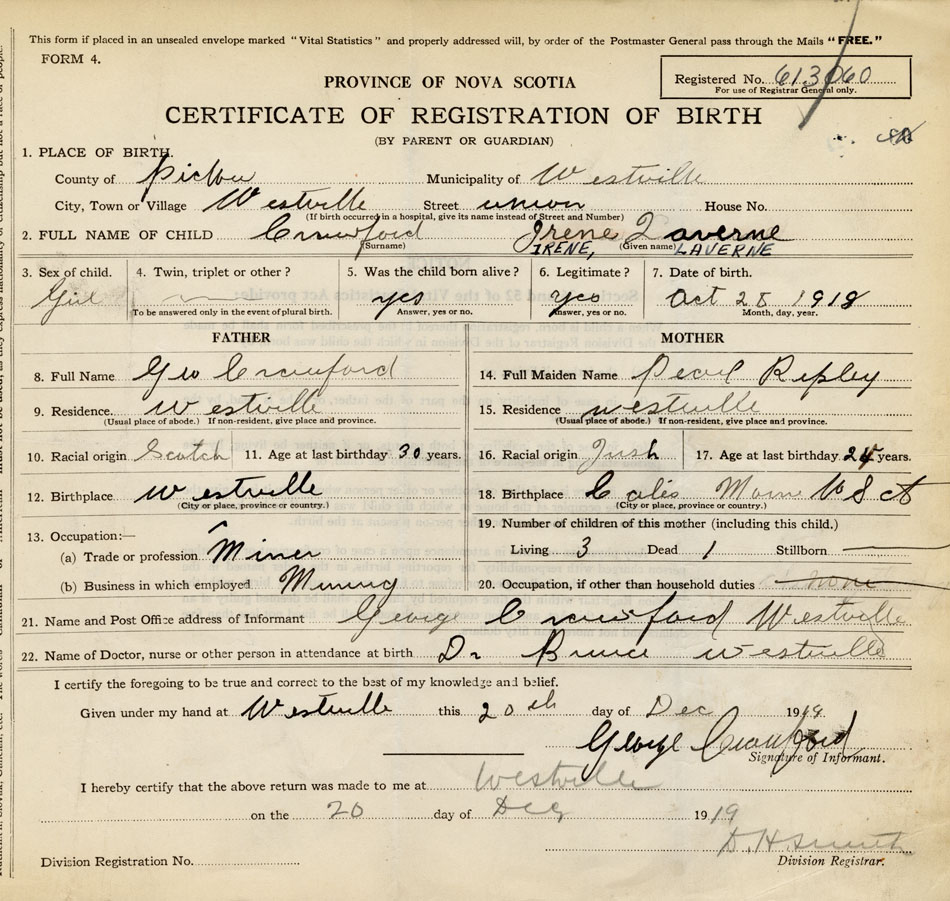 This form if placed in an unsealed envelope marked "Vital Statistics" and properly addressed will, by order of the Postmaster General pass through the Mails "FREE."
FORM 4.
Registered No. 613060
For use of Registrar General only.
PROVINCE OF NOVA SCOTIA
CERTIFICATE OF REGISTRATION OF BIRTH
(BY PARENT OR GUARDIAN)
1. PLACE OF BIRTH.
County of Pictou Municipality of Westville
City, Town or Village Westville Street union House No.
(If birth occurred in a hospital, give its name instead of Street and Number)
2. FULL NAME OF CHILD Crawford Irene Laverne
(Surname) IRENE, (Given name) LAVERNE
3. Sex of child. 4. Twin, triplet or other? 5. Was the child born alive? 6. Legitimate? 7. Date of birth.
Girl yes yes Oct 28 1918
To be answered only in the event of plural birth. Answer, yes or no. Answer, yes or no. Month, day, year.
FATHER MOTHER
8. Full Name Geo Crawford 14. Full Maiden Name Pearl Ripley
9. Residence. Westville 15. Residence westville
(Usual place of abode.) If non-resident, give place and province. (Usual place of abode.) If non-resident, give place and province.
10. Racial origin Scotch 11. Age at last birthday 30 years. 16. Racial origin Irish 17. Age at last birthday 24 years.
12. Birthplace Westville 18. Birthplace Calis
(City or place, province or country.) (City or place, province or country.)
19. Number of children of this mother (including this child.)
13. Occupation:—
(a) Trade or profession Miner Living 3 Dead 1 Stillborn
(b) Business in which employed Mining 20. Occupation, if other than household duties none
21. Name and Post Office address of Informant George Crawford Westville
22. Name of Doctor, nurse or other person in attendance at birth Dr westville
I certify the foregoing to be true and correct to the best of my knowledge and belief.
Given under my hand at Westville this 20th day of Dec 1919
George Crawford
Signature of Informant.
I hereby certify that the above return was made to me at Westville
on the 20 day of Dec 1919
D. H. Smith
Division Registration No. Division Registrar.